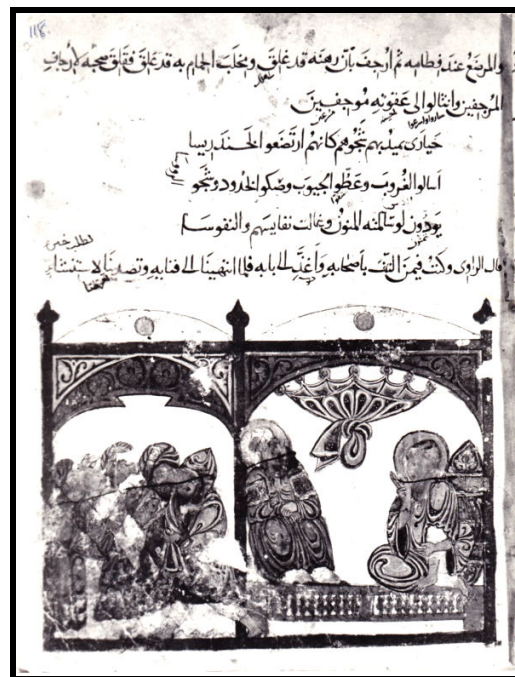 والمرضع عند فطامه ثم ارجف بان رهنه قد غلق ومخلب الحمام به قد علق فقلق صحبه لارجاف
المرجفين وانثالوا الى عقوته موجفين
حيارى يميد بهم شجوهم كانهم ارتضعوا الخندريسا
اسالوا الغروب وعطوا الجيوب وصكوا الخدود وشجو
يودون لو سالمته المنون وغالت نفايسهم والنفوسا
لطلب خبره
قال الراوى وكنت فيمن التف باصحابه واغذ الى بابه فلما انتهينا الى فنايه وتصدينا لاستنشاء